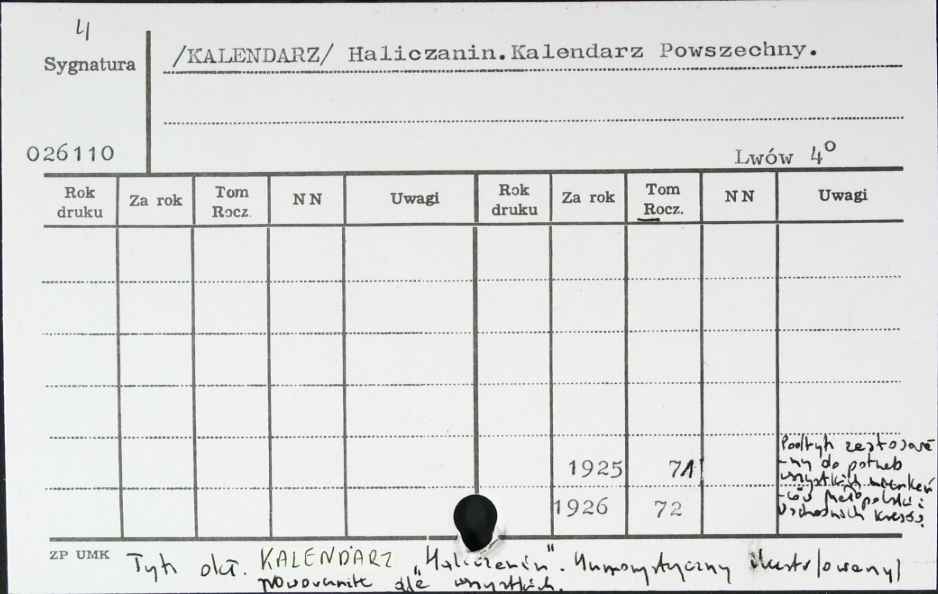 4
Sygnatura
/KALENDARZ/ Haliczanin.Kalendarz Powszechny.
026110
Lwów 4°
Rok druku Za rok Tom Rocz. NN Uwagi Rok druku Za rok Tom Rocz. NN Uwagi
Podtyt zastosowa
1925 71
-ny do potrzeb
wszystkich mieszkań
1926 72
-ców Małopolski i
Wschodnich kresów
ZP UMK
Tyt. okł. KALENDARZ "Haliczanin". Humorystyczny ilustrowany
dla wszystkich.